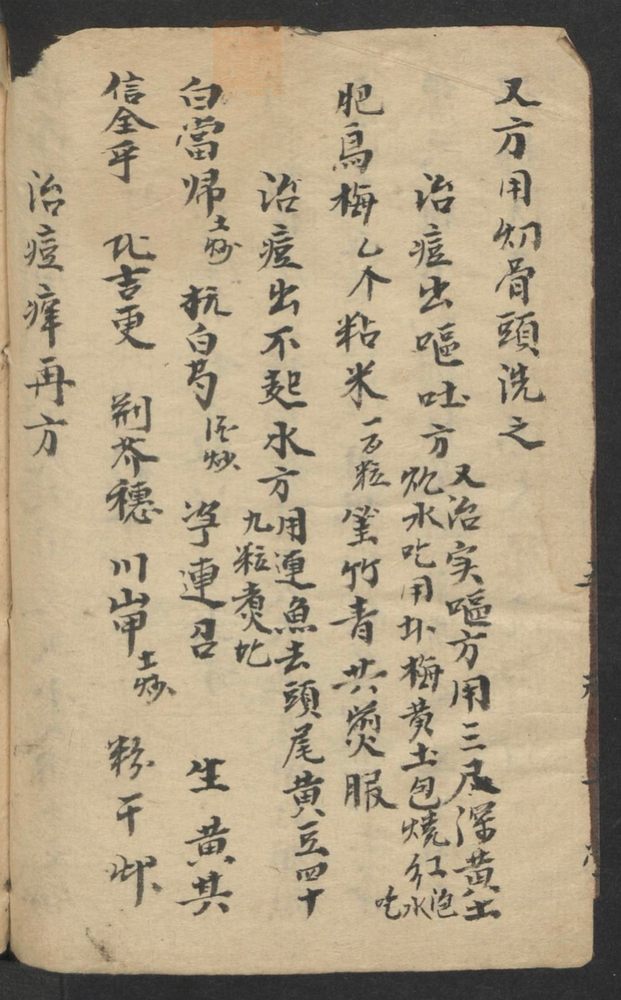 又方用切骨頭洗之
治痘出嘔吐方
又治实嘔方用三尺深黄土
炮水吃用圤梅黄土包燒紅泡水吃
肥烏梅乙个粘米一百粒 竹青共煲服
治痘出不起水方
用連魚去頭尾黄豆四十
九粒煮吃
白當帰土炒 杭白芍 炒 連召 生黄其
信全乎 北吉更 荆芥穗 川山甲土炒 粉干
治痘痒再方